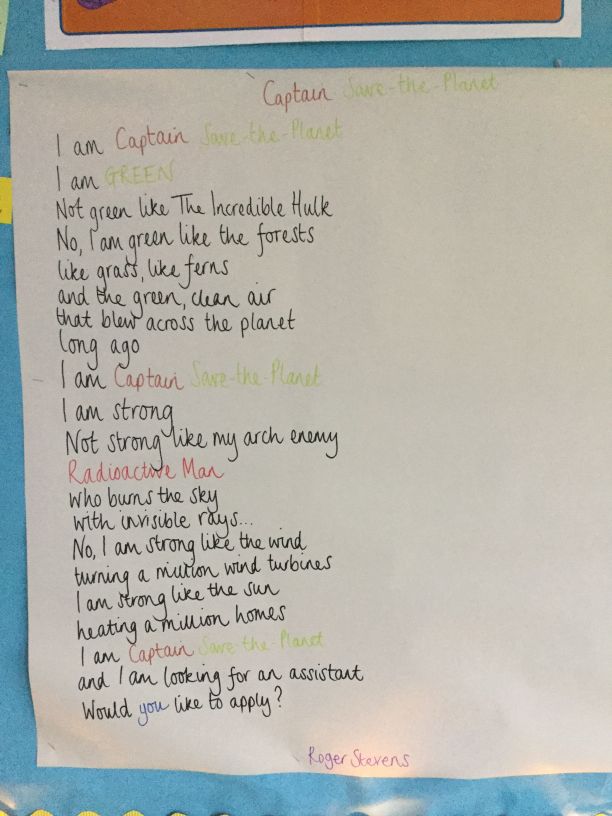 Captain Save-the-Planet
I am Captain Save-the-Planet
I am GREEN
Not green like The Incredible Hulk
No, I am green like the forests
like grass, like ferns
and the green, clean air
that blew across the planet
long ago
I am Captain Save-the-Planet
I am strong
Not strong like my arch enemy
Radioactive Man
who burns the sky
with invisible rays...
No, I am strong like the wind
turning a million wind turbines
I am strong like the sun
heating a million homes
I am Captain Save-the-Planet
and I am looking for an assistant
Would you like to apply?
Roger Stevens